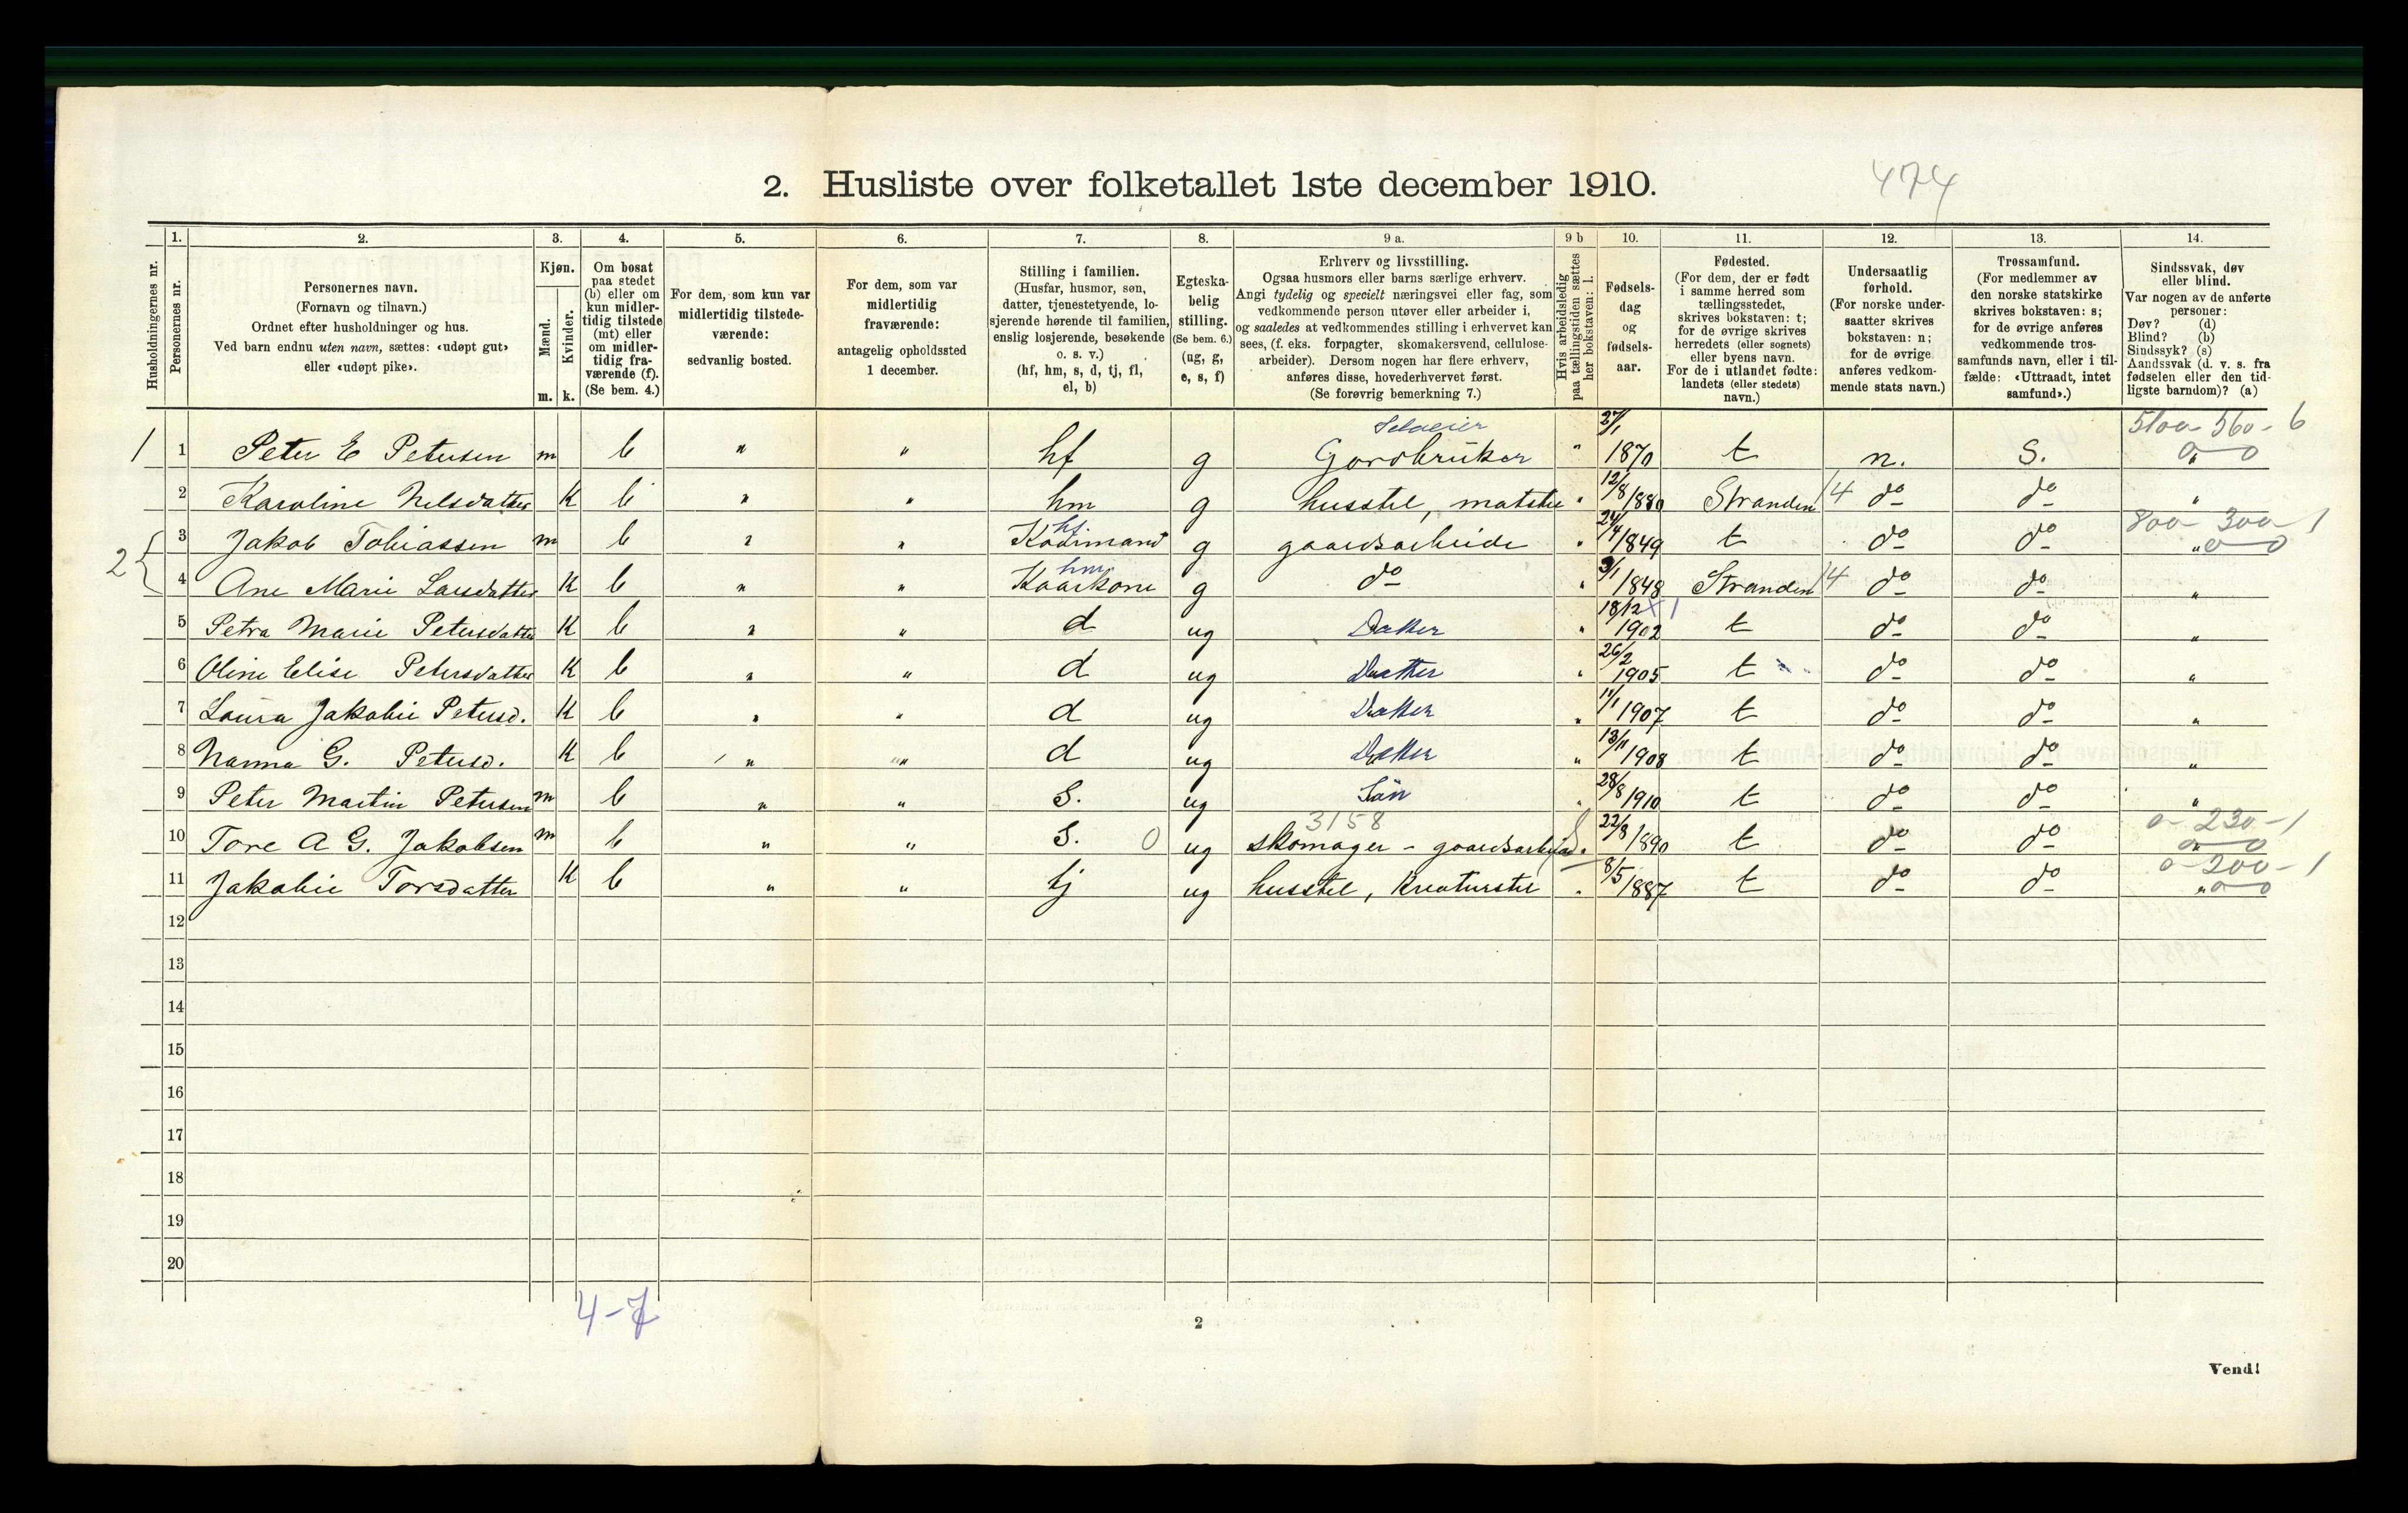 2. Husliste over folketallet 1ste december 1910.
474
Husholdningernes nr.
1.
Personernes nr.
2.
Personernes navn.
(Fornavn og tilnavn.)
Ordnet efter husholdninger og hus.
Ved barn endnu uten navn, sættes: «udøpt gut»
eller «udøpt pike».
3.
Kjøn.
Mænd.
Kvinder.
m. k.
4.
Om bosat
paa stedet
(b) eller om
kun midler-
tidig tilstede
(mt) eller
om midler-
tidig fra-
værende (f).
(Se bem. 4.)
5.
For dem, som kun var
midlertidig tilstede-
værende:
sedvanlig bosted.
6.
For dem, som var
midlertidig
fraværende:
antagelig opholdssted
1 december.
7.
Stilling i familien.
(Husfar, husmor, søn,
datter, tjenestetyende, lo-
sjerende hørende til familien,
enslig losjerende, besøkende
o. s. v.)
(hf, hm, s, d, tj, fl,
el, b)
8.
Egteska-
belig
stilling.
(Se bem. 6.)
(ug, g,
e, s, f)
9 a.
Erhverv og livsstilling.
Ogsaa husmors eller barns særlige erhverv.
Angi tydelig og specielt næringsvei eller fag, som
vedkommende person utøver eller arbeider i,
og saaledes at vedkommendes stilling i erhvervet kan
sees, (f. eks. forpagter, skomakersvend, cellulose-
arbeider). Dersom nogen har flere erhverv,
anføres disse, hovederhvervet først.
(Se forøvrig bemerkning 7.)
9 b
Hvis arbeidsledig
paa tællingstiden sættes
her bokstaven: l.
10.
Fødsels-
dag
og
fødsels-
aar.
11.
Fødested.
(For dem, der er født
i samme herred som
tællingsstedet,
skrives bokstaven: t;
for de øvrige skrives
herredets (eller sognets)
eller byens navn.
For de i utlandet fødte:
landets (eller stedets)
navn.)
12.
Undersaatlig
forhold.
(For norske under-
saatter skrives
bokstaven: n;
for de øvrige
anføres vedkom-
mende stats navn.)
13.
Trossamfund.
(For medlemmer av
den norske statskirke
skrives bokstaven: s;
for de øvrige anføres
vedkommende tros-
samfunds navn, eller i til-
fælde: «Uttraadt, intet
samfund».)
14.
Sindssvak, døv
eller blind.
Var nogen av de anførte
personer:
Døv? (d)
Blind? (b)
Sindssyk? (s)
Aandssvak (d. v. s. fra
fødselen eller den tid-
ligste barndom)? (a)
Selveier 5100 - 560 - 6
1 1 Peter E Petersen m b " " hf g Gardbruker " 27/1 1870 t n. S. "
2 Karoline Nelsdatter K b " " hm g husstel, matstel " 12/8 1880 Stranden 14 do do "
hf. 800 - 300 - 1
2 3 Jakob Tobiassen m b " " Kaarmand g gaardsarbeide " 24/4 1849 t do do "
hm
4 Ane Marie Larsdatter K b " " Kaarkone g do " 9/1 1848 Stranden 14 do do "
5 Petra Marie Petersdatter K b " " d ug Datter " 18/12 1902 × 1 t do do "
6 Oline Elise Petersdatter K b " " d ug Datter " 26/2 1905 t do do "
7 Laura Jakobie Petersd. K b " " d ug Datter " 11/1 1907 t do do "
8 Nanna G. Petersd. K b " " d ug Datter " 13/11 1908 t do do "
9 Peter Martin Petersen m b " " S. ug Sön " 28/8 1910 t do do "
3158 0 - 230 - 1
10 Tore A G. Jakobsen m b " " S. 0 ug skomager - gaardsarbeid " 22/8 1890 t do do "
0 - 200 - 1
11 Jakobie Torsdatter K b " " tj ug husstel, Kreaturstel " 8/5 1887 t do do "
12
13
14
15
16
17
18
19
20
4-7
2
Vend!